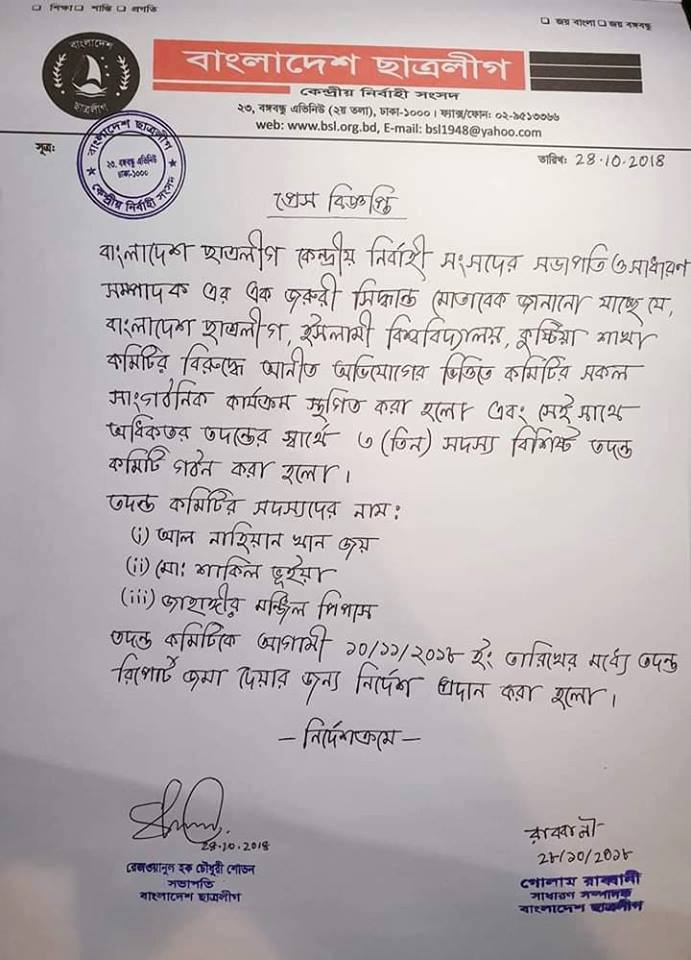 ❑ শিক্ষা ❑ শান্তি ❑ প্রগতি
❑ জয় বাংলা ❑ জয় বঙ্গবন্ধু
বাংলাদেশ
ছাত্রলীগ
বাংলাদেশ ছাত্রলীগ
কেন্দ্রীয় নির্বাহী সংসদ
২৩, বঙ্গবন্ধু এভিনিউ (২য় তলা), ঢাকা-১০০০। ফ্যাক্স/ফোন: ০২-৯৫১৩৩৬৬
web: www.bsl.org.bd, E-mail: bsl1948@yahoo.com
সূত্র:
বাংলাদেশ ছাত্রলীগ
২৩, বঙ্গবন্ধু এভিনিউ
ঢাকা-১০০০
কেন্দ্রীয় নির্বাহী সংসদ
তারিখ: 28.10.2018
প্রেস বিজ্ঞপ্তি
বাংলাদেশ ছাত্রলীগ কেন্দ্রীয় নির্বাহী সংসদের সভাপতি ও সাধারণ
সম্পাদক এর এক জরুরী সিদ্ধান্ত মোতাবেক জানানো যাচ্ছে যে,
বাংলাদেশ ছাত্রলীগ, ইসলামী বিশ্ববিদ্যালয়, কুষ্টিয়া শাখা
কমিটির বিরুদ্ধে আনীত অভিযোগের ভিত্তিতে কমিটির সকল
সাংগঠনিক কার্যক্রম স্থগিত করা হলো এবং সেই সাথে
অধিকতর তদন্তের স্বার্থে ৩ (তিন) সদস্য বিশিষ্ট তদন্ত
কমিটি গঠন করা হলো।
তদন্ত কমিটির সদস্যদের নাম:
(i) আল নাহিয়ান খান জয়
(ii) মো: শাকিল ভূইয়া
(iii) জাহাঙ্গীর মঞ্জিল পিপাস
তদন্ত কমিটিকে আগামী ১০/১১/২০১৮ ইং তারিখের মধ্যে তদন্ত
রিপোর্ট জমা দেয়ার জন্য নির্দেশ প্রদান করা হলো।
— নির্দেশক্রমে —
28.10.2018
রেজওয়ানুল হক চৌধুরী শোভন
সভাপতি
বাংলাদেশ ছাত্রলীগ
রাব্বানী
২৮/১০/২০১৮
গোলাম রাব্বানী
সাধারণ সম্পাদক
বাংলাদেশ ছাত্রলীগ